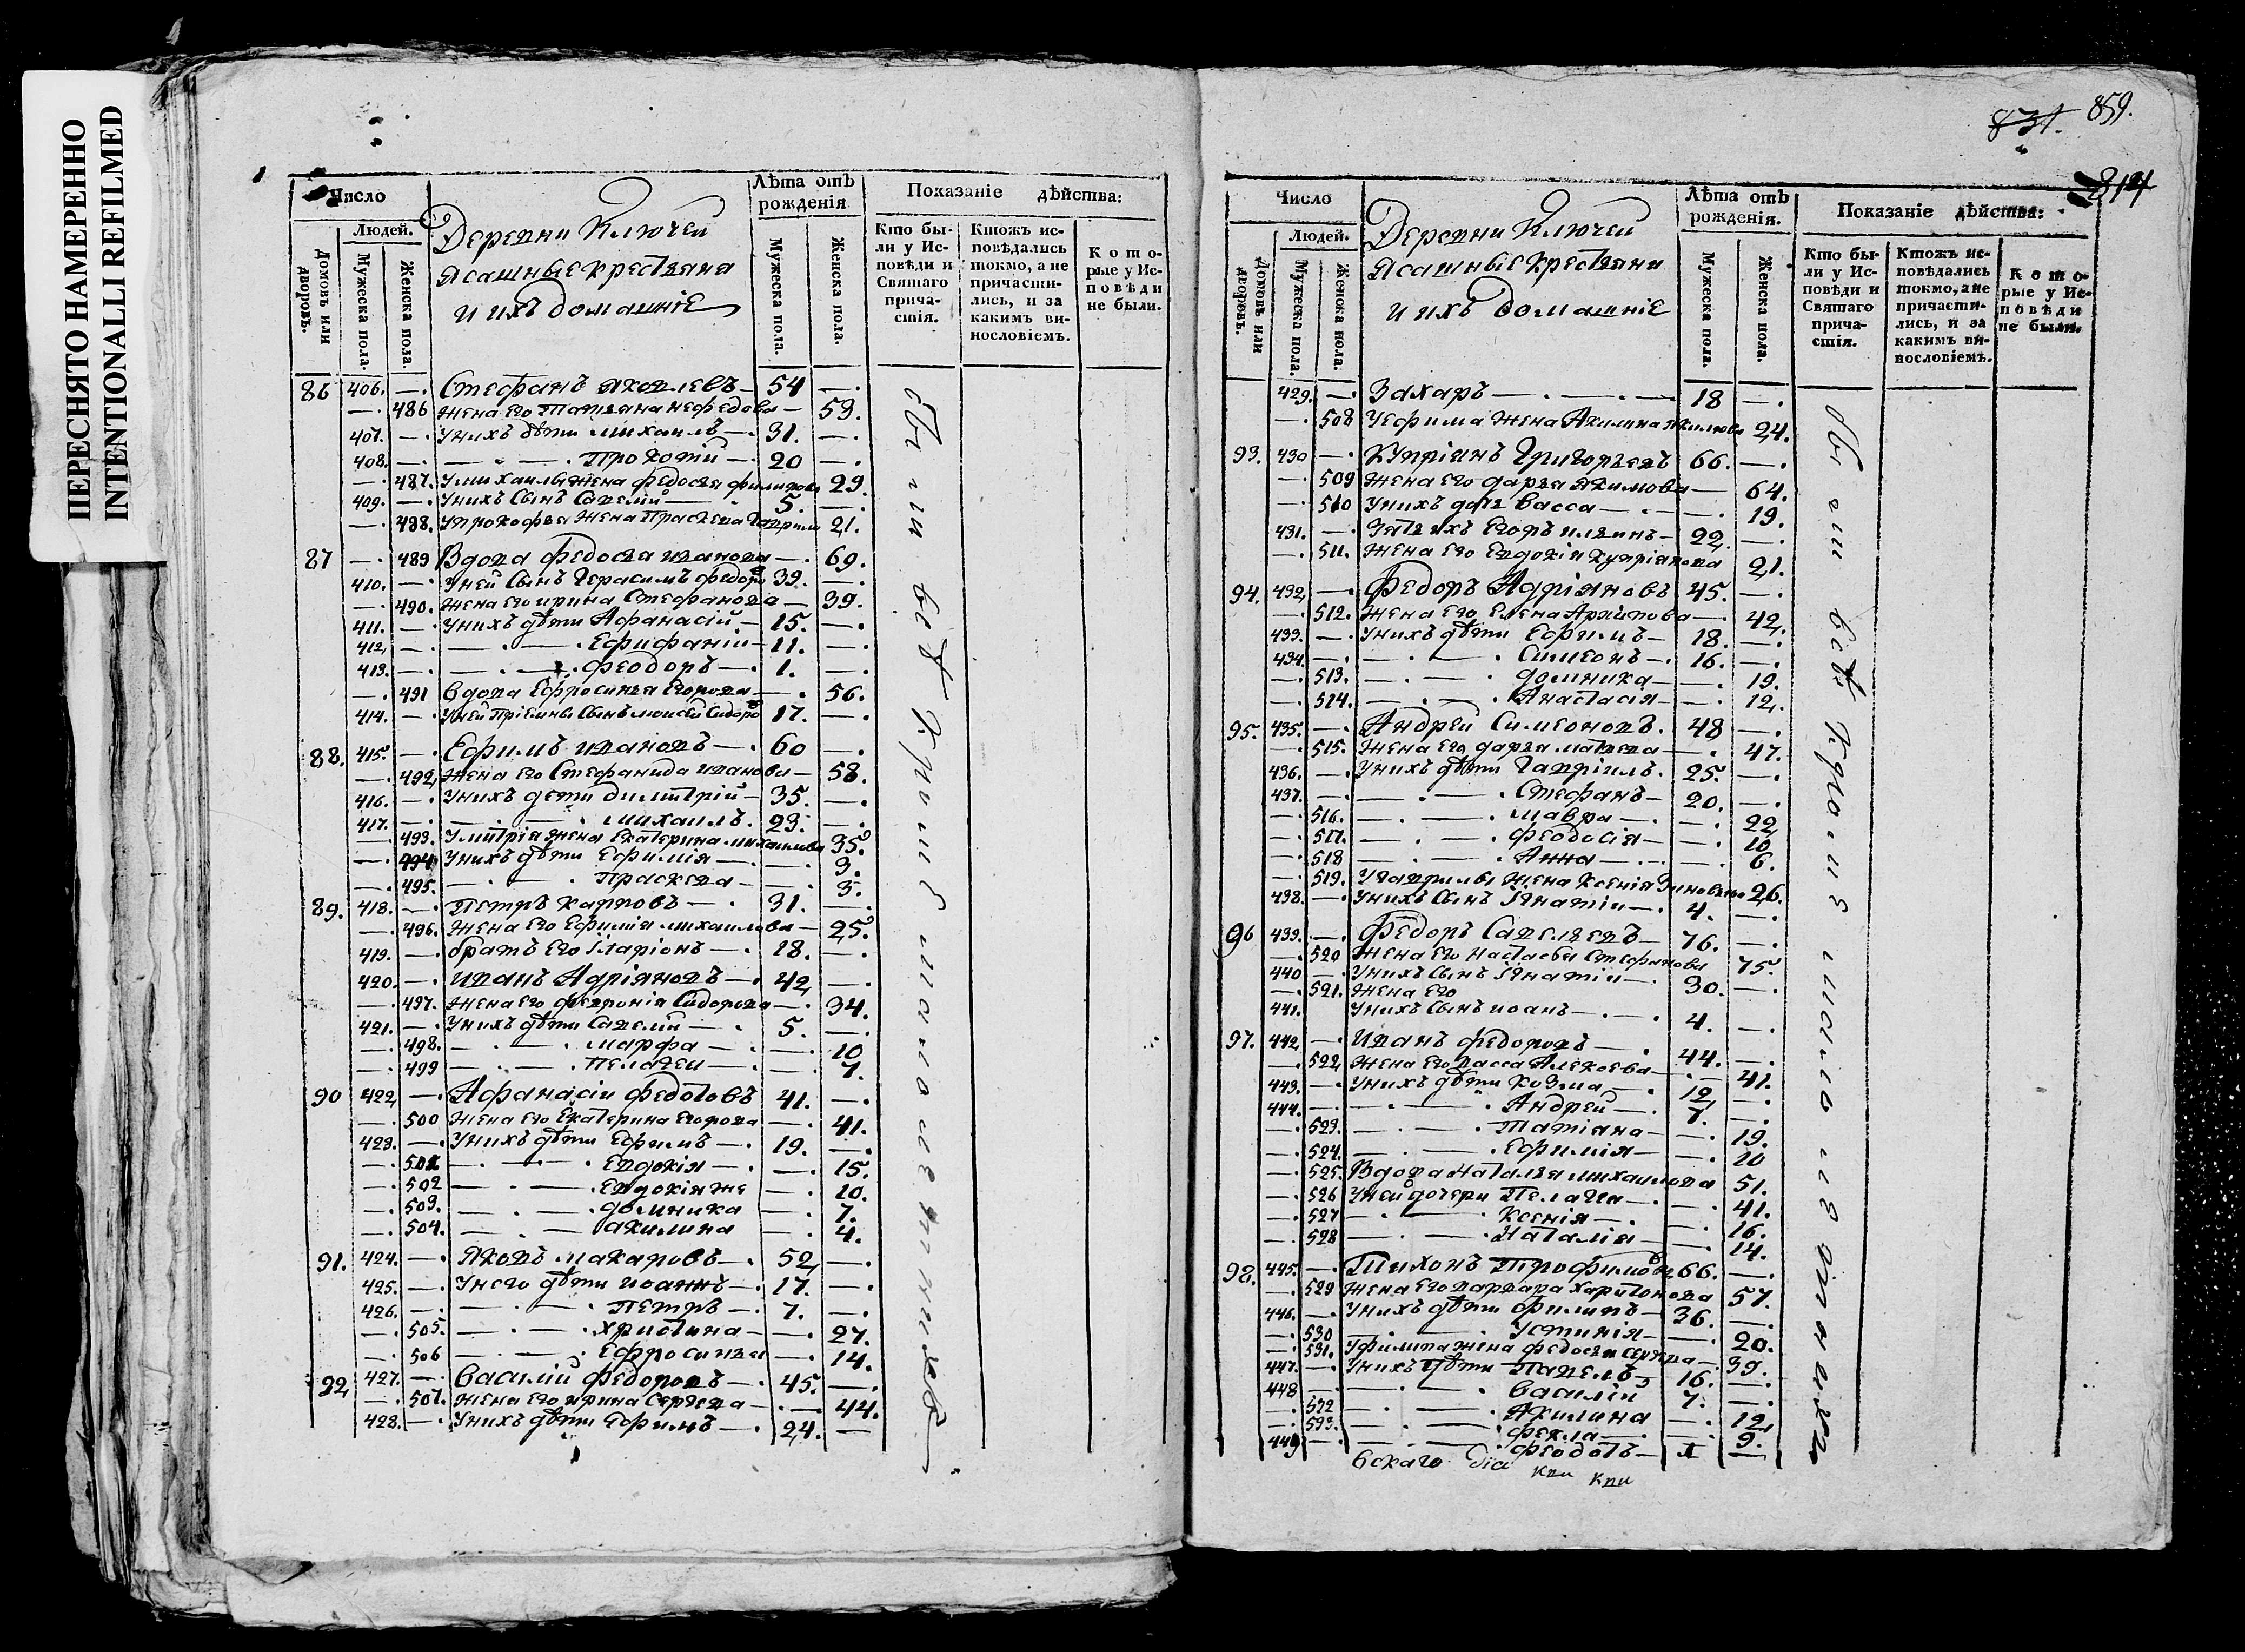 ПЕРЕСНЯТО НАМЕРЕННО
INTENTIONALLI REFILMED
Число
Людей.
Домовъ или дворовъ.
Мужеска пола.
Женска пола.
Деревни Ключей
Ясашные крестяня
и ихъ домашніе
Лѣта отъ рожденія
Мужеска пола.
Женска пола.
Показаніе дѣйства:
Кто бы-
ли у Ис-
повѣди и
Святаго
прича-
стія.
Ктожъ ис-
повѣдались
токмо, а не
причасти-
лись, и за
какимъ ви-
нословіемъ.
К о т о-
рые у Ис-
п о в ѣ д и
не были.
86 406. —. Стефанъ Яковлевъ — 54 —.
—. 486 Жена его Татяна Нефедова — 53.
407. —. У нихъ дѣти Михаилъ —. 31. —.
408. —. — . — . Прокопій —. 20 —.
—. 487. У Михаилы жена Федосья Филипова 29.
409. —. У нихъ сынъ Савелій — . 5. —.
—. 488. У Прокофья жена Праскева Гаврил 21.
87 —. 489 Вдова Федосья Иванова —. 69.
410. —. У ней сынъ Герасимъ Федоро 39. —.
—. 490. Жена его Ирина Стефанова — 39.
411. —. У нихъ дѣти Афанасій — 15. —.
412, —. — . — . Епифаній — 11. —.
413. —. — . — . Феодоръ —. 1. —.
—. 491 Вдова Ефросинья Егорова —. 56.
414. —. У ней пріемны сынъ Моисей Сидоро 17. —.
88. 415. —. Ефимъ Ивановъ —. 60 —.
—. 492, Жена его Стефанида Иванова — 58.
416. —. У нихъ дети Димитрій — 35. —.
417. —. — . — . Михаилъ. 23. —.
—. 493. У Митрія жена Екатерина Михаилова 35.
—. 494 У нихъ дѣти Ефимія — . — . 3.
—. 495. — . — . Праскева — —. 3.
89. 418. —. Петръ Карповъ — . 31. —.
—. 496. Жена его Ефимія Михаилова — 25.
419. —. братъ его Иларіонъ —. 18. —.
420. —. Иванъ Адріяновъ —. 42, —.
—. 497. Жена его Февронія Сидорова —. 34.
421. —. У нихъ дѣти Савелій — . 5. —.
—. 498. — . — . Марфа — . —. 10
—. 499 — . — . Пелагея — . —. 7.
90 422, —. Афанасіи Федотовъ 41. —.
—. 500 Жена его Екатерина Егорова —. 41.
423. —. У нихъ дѣти Ефимъ —. 19. —.
—. 501 — . — . Евдокія —. —. 15.
—. 502 — . — . Евдокія же —. 10.
—. 503. — . — . Домника —. 7.
—. 504. — . — Акилина —. 4.
91. 424. —. Яковъ Макаровъ —. 52, —.
425. —. У него дѣти Иоаннъ —. 17. —.
426. —. — . — . Петръ —. 7. —.
—. 505. — . — . Христина — —. 27.
—. 506 — . — . Ефросинья —. 14.
92, 427. —. Василій Федоровъ —. 45. —.
—. 507. Жена его Ирина Сергева —. —. 44.
428. —. У нихъ дѣти Ефимъ —. 24. —
831. 859.
Число
Людей.
Домовъ или дворовъ.
Мужеска пола.
Женска пола.
Деревни Ключей
Ясашные крестяни
и ихъ домашніе
Лѣта отъ рожденія.
Мужеска пола.
Женска пола.
Показаніе дѣйства:
Кто бы-
ли у Ис-
повѣди и
Святаго
прича-
стія.
Ктожъ ис-
повѣдались
токмо, а не
причасти-
лись, и за
какимъ ви-
нословіемъ.
К о т о-
рые у Ис-
п о в ѣ д и
не были.
429. —. Захаръ — . — . — 18 —.
—. 508 У Ефима жена Акилина Якимова 24.
93. 430 —. Купріянъ Григорьевъ 66. —.
—. 509 Жена его Дарья Якимова — 64.
—. 510 У нихъ дочь Васса — . — —. 19.
431. —. Зять ихъ Егоръ Ильинъ — 22, —.
—. 511. Жена его Евдокія Купріянова 21.
94. 432, —. Федоръ Адріяновъ 45. —.
—. 512. Жена его Елена Архипова —. 42,
433. —. У нихъ дѣти Ефимъ — 18. —.
434. —. — . — . Симеонъ —. 16. —.
—. 513. — . — . Домника — —. 19.
—. 514. — . — . Анастасія — —. 12,
95. 435. —. Андрей Симеоновъ. 48 —.
—. 515. Жена его Дарья Матвева —. 47.
436. —. У нихъ дѣти Гавріилъ. 25. —.
437. —. — . — . Стефанъ — 20. —.
—. 516. — . — . Мавра —. —. 22,
—. 517. — . — . Феодосія — —. 10
—. 518 — . — . Анна — . — —. 6.
—. 519. У Гаврилы жена Ксенія Зиновьева 26.
438. —. У нихъ сынъ Игнатіи —. 4. —.
96 439. —. Федоръ Савельевъ — 76. —.
—. 520 Жена его Настасья Стефанова 75.
440 —. У нихъ сынъ Игнатіи —. 30. —.
—. 521. Жена его
441. У нихъ сынъ Иоанъ — . — 4. —.
97. 442, —. Иванъ Федоровъ — . 44. —.
—. 522, Жена его Васса Алексева — . — 41.
443. —. У нихъ дѣти Козма — . 12, —.
444. —. — . — . Андрей —. 7. —.
—. 523. — . — . Татіяна — —. 19.
—. 524. — . — . Ефимія — —. 10
—. 525. Вдова Наталья Михаилова 51.
—. 526 У ней дочери Пелагея —. —. 41.
—. 527 — . — . Ксенія —. —. 16.
—. 528 — . — . Наталія — —. 14.
98. 445. —. Тихонъ Трофимовъ 66. —.
—. 529 Жена его Варвара Харитонова 57.
446. —. У нихъ дѣти Филипъ — 36. —.
—. 530 — . — . Устинія — —. 20.
—. 531. У Филипа жена Федосья Сергева —. 39.
447. —. У нихъ дѣти Павелъ — 16. —.
448 —. — . — . Василій 7. —.
—. 532 — . — . Акилина —. 12,
—. 533. — . — . Фекла — . —. 9.
449 —. — . — . Феодотъ — 1 —
вскаго